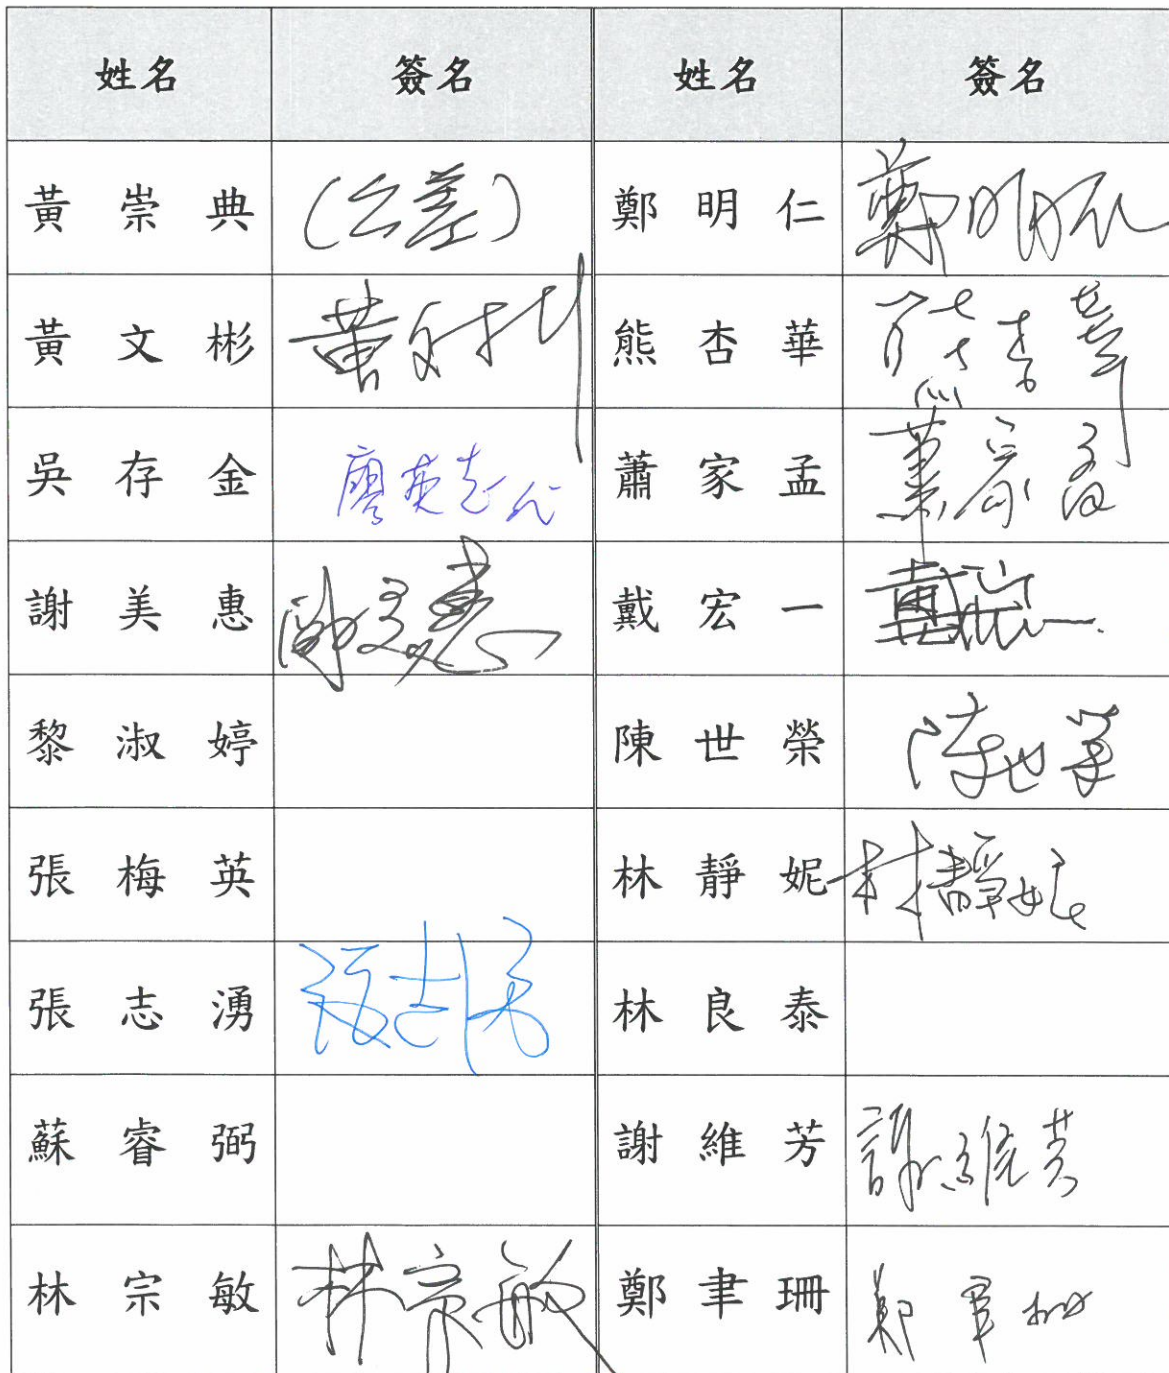 姓名 簽名 姓名 簽名
黃崇典 (公差) 鄭明仁 鄭明仁
黃文彬 黃文彬 熊杏華 熊杏華
吳存金 廖英志代 蕭家孟 蕭家孟
謝美惠 謝美惠 戴宏一 戴宏一
黎淑婷 陳世榮 陳世榮
張梅英 林靜妮 林靜妮
張志湧 張志湧 林良泰
蘇睿弼 謝維芳 謝維芳
林宗敏 林宗敏 鄭聿珊 鄭聿珊